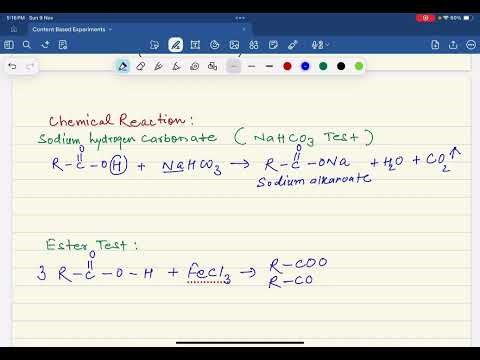 5:16 PM Sun 9 Nov
60%
Content Based Experiments
Chemical Reaction:
Sodium hydrogen Carbonate ( NaHCO3 Test )
O
R-C-OH + NaHCO3 → R-C-ONa + H2O + CO2↑
O
Sodium alkanoate
Ester Test:
O
3 R-C-O-H + FeCl3 → R-COO
R-CO